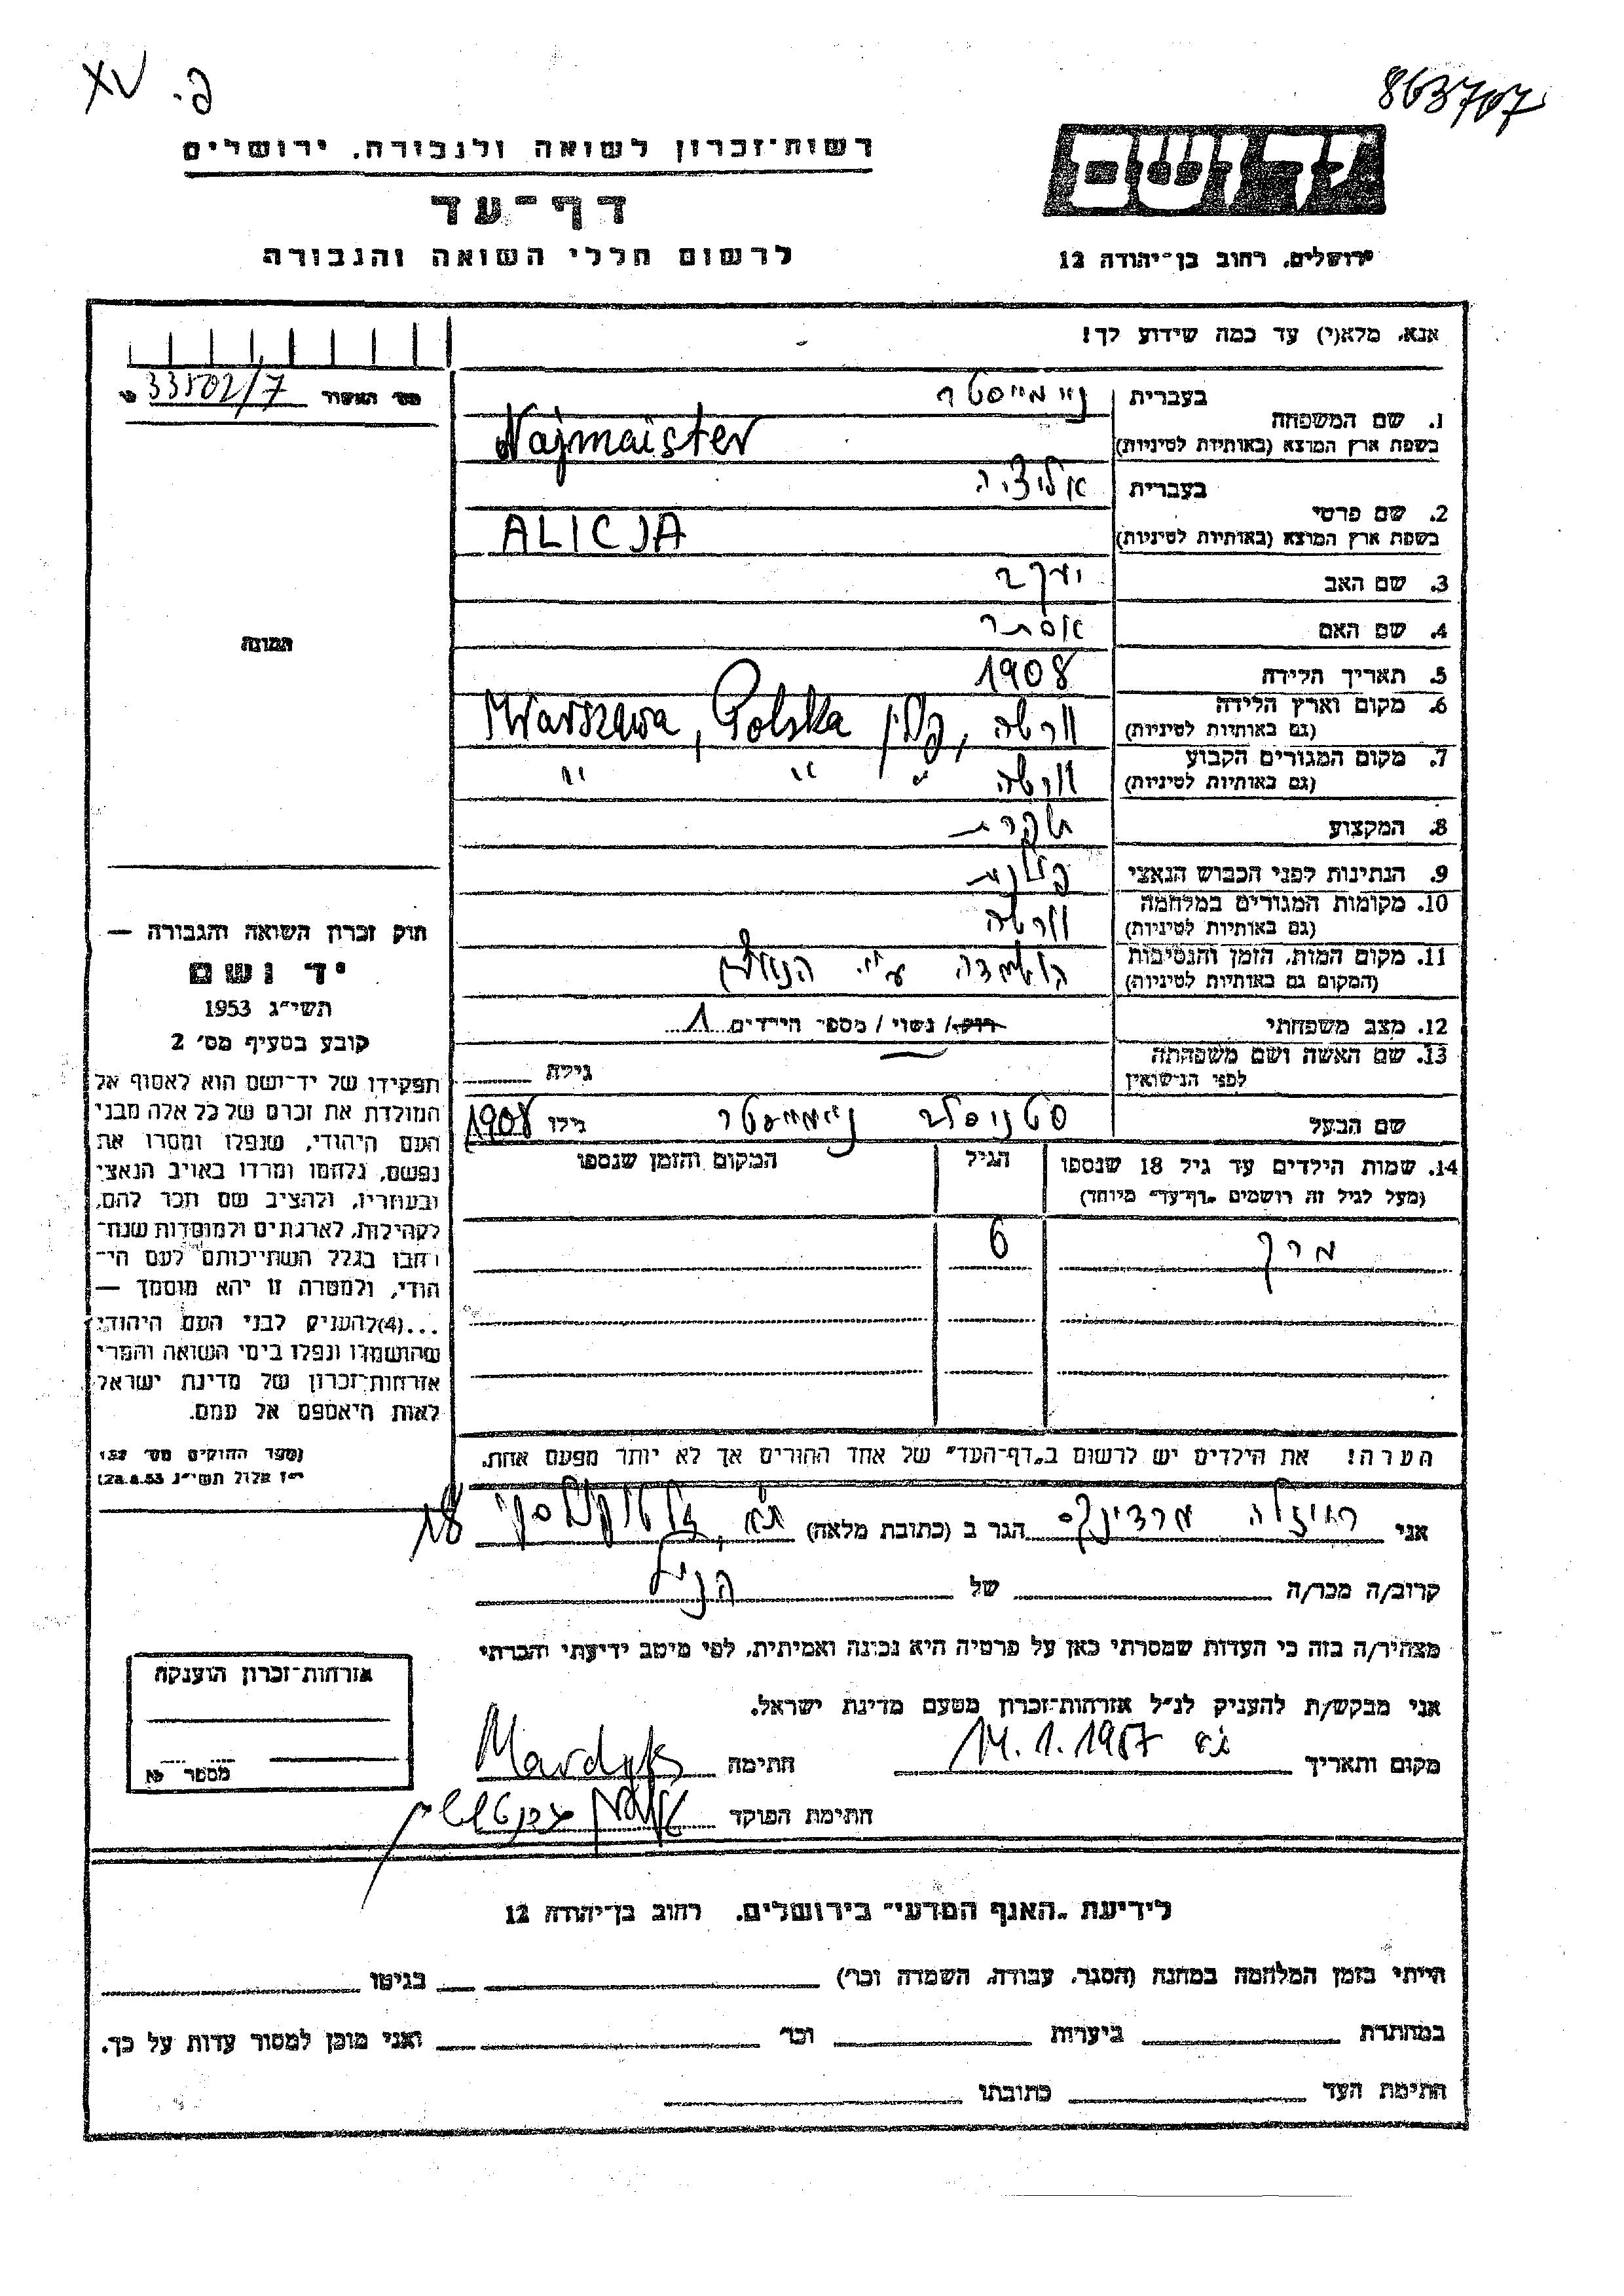 XV .פ
863707
רשות־זכרון לשואה ולגבורה, ירושלים
דף־עד
לרשום חללי השואה והגבורה
יד ושם
ירושלים, רחוב בן־יהודה 12
אנא, מלא(י) עד כמה שידוע לך!
מס׳ האשור 33502/7
1. שם המשפחה
בעברית ניימייסטר
בשפת ארץ המוצא (באותיות לטיניות) Najmaister
2. שם פרטי
בעברית אליציה
בשפת ארץ המוצא (באותיות לטיניות) ALICJA
3. שם האב יעקב
4. שם האם אסתר
5. תאריך הלידה 1908
6. מקום וארץ הלידה
(גם באותיות לטיניות) ורשה, פולין Warszawa, Polska
7. מקום המגורים הקבוע
(גם באותיות לטיניות) ורשה " " "
8. המקצוע
9. הנתינות לפני הכבוש הנאצי פולנית
10. מקומות המגורים במלחמה
(גם באותיות לטיניות) ורשה
11. מקום המות, הזמן והנסיבות
(המקום גם באותיות לטיניות) הושמדה ע"י הנאצים
12. מצב משפחתי רוק/ נשוי / מספר הילדים 1
13. שם האשה ושם משפחתה
לפני הנישואין גילה
שם הבעל סטניסלב ניימייסטר גילו 1908
14. שמות הילדים עד גיל 18 שנספו
(מעל לגיל זה רושמים „דף־עד״ מיוחד)
הגיל
המקום והזמן שנספו
מרק 6
הערה! את הילדים יש לרשום ב„דף־העד״ של אחד ההורים אך לא יותר מפעם אחת.
תמונה
חוק זכרון השואה והגבורה —
יד ושם
תשי״ג 1953
קובע בסעיף מס׳ 2
תפקידו של יד־ושם הוא לאסוף אל
המולדת את זכרם של כל אלה מבני
העם היהודי, שנפלו ומסרו את
נפשם, נלחמו ומרדו באויב הנאצי
ובעוזריו, ולהציב שם וזכר להם,
לקהילות, לארגונים ולמוסדות שנח־
רבו בגלל השתייכותם לעם הי־
הודי, ולמטרה זו יהא מוסמך —
...(4)להעניק לבני העם היהודי
שהושמדו ונפלו בימי השואה והמרי
אזרחות־זכרון של מדינת ישראל
לאות היאספם אל עמם.
(ספר החוקים מס׳ 132
י״ז אלול תשי״ג 28.8.53)
אני רוזליה מרדיקס הגר ב (כתובת מלאה) ת"א, 18
קרוב/ה מכר/ה של הנ"ל
מצהיר/ה בזה כי העדות שמסרתי כאן על פרטיה היא נכונה ואמיתית, לפי מיטב ידיעתי והכרתי
אני מבקש/ת להעניק לנ״ל אזרחות־זכרון מטעם מדינת ישראל.
מקום ותאריך ת"א 14.1.1957 חתימה Mardyks
חתימת הפוקד
אזרחות־זכרון הוענקה
מספר
לידיעת „האגף המדעי״ בירושלים, רחוב בן־יהודה 12
הייתי בזמן המלחמה במחנה (הסגר, עבודה, השמדה וכו׳) בגיטו
במחתרת ביערות וכו׳ ואני מוכן למסור עדות על כך.
חתימת העד כתובתו